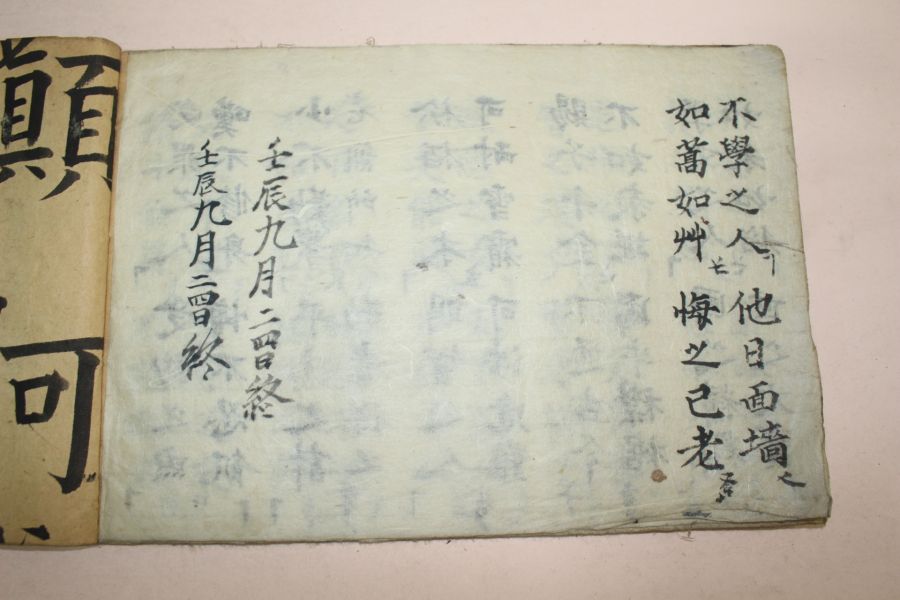 不學之人他日面墻
如蒿如艸悔之已老
壬辰九月二四日終
壬辰九月二四日終
顚
可